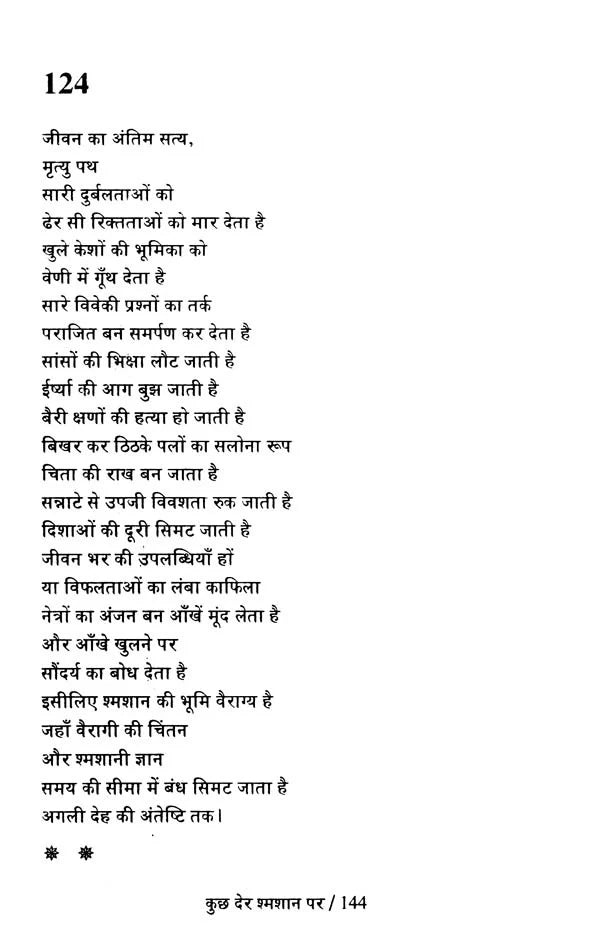 124
जीवन का अंतिम सत्य,
मृत्यु पथ
सारी दुर्बलताओं को
ढेर सी रिक्तताओं को मार देता है
खुले केशों की भूमिका को
वेणी में गूँथ देता है
सारे विवेकी प्रश्नों का तर्क
पराजित बन समर्पण कर देता है
सांसों की भिक्षा लौट जाती है
ईर्ष्या की आग बुझ जाती है
बैरी क्षणों की हत्या हो जाती है
बिखर कर ठिठके पलों का सलोना रूप
चिता की राख बन जाता है
सन्नाटे से उपजी विवशता रुक जाती है
दिशाओं की दूरी सिमट जाती है
जीवन भर की उपलब्धियाँ हों
या विफलताओं का लंबा काफिला
नेत्रों का अंजन बन आँखें मूंद लेता है
और आँखे खुलने पर
सौंदर्य का बोध देता है
इसीलिए श्मशान की भूमि वैराग्य है
जहाँ वैरागी की चिंतन
और श्मशानी ज्ञान
समय की सीमा में बंध सिमट जाता है
अगली देह की अंतेष्टि तक।
कुछ देर श्मशान पर / 144